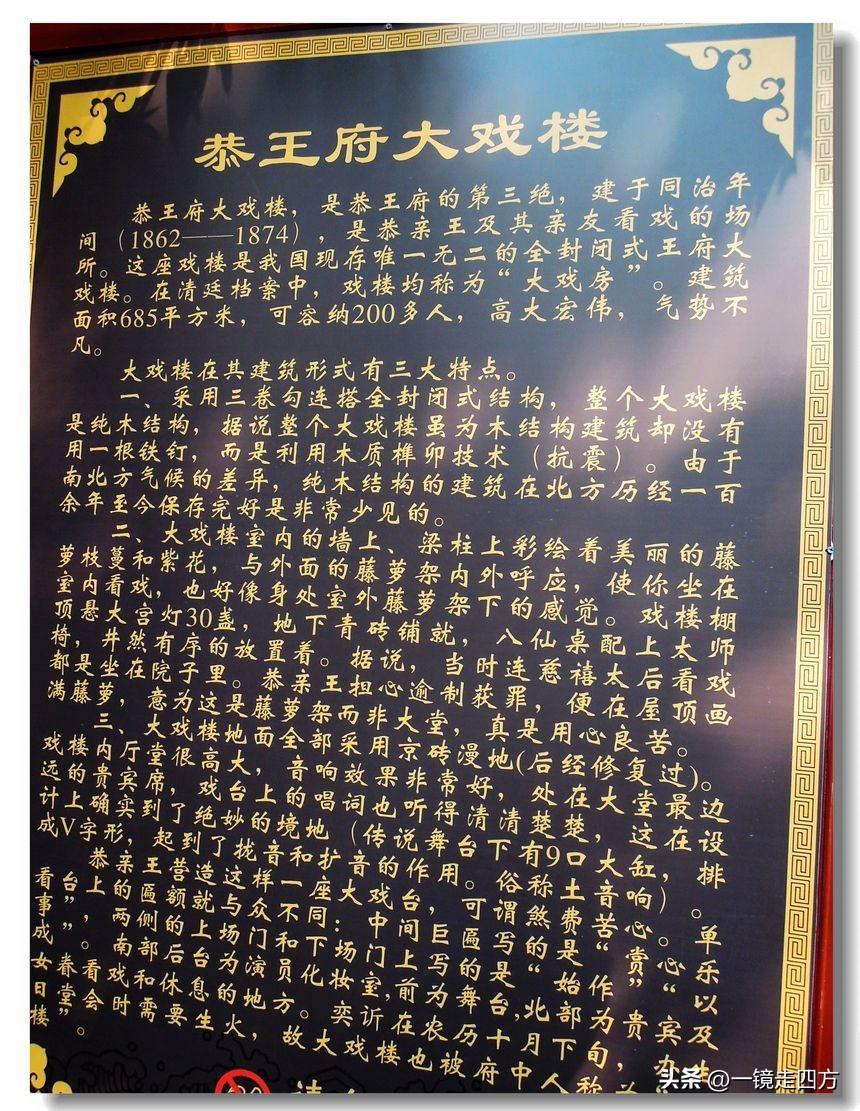 恭王府大戏楼
恭王府大戏楼，是恭王府的第三绝，建于同治年
间（1862——1874），是恭亲王及其亲友看戏的场
所。这座戏楼是我国现存唯一无二的全封闭式王府大
戏楼。在清廷档案中，戏楼均称为“大戏房”。建筑
面积685平方米，可容纳200多人，高大宏伟，气势不
凡。
大戏楼在其建筑形式有三大特点。
一、采用三卷勾连搭全封闭式结构，整个大戏楼
是纯木结构，据说整个大戏楼虽为木结构建筑却没有
用一根铁钉，而是利用木质榫卯技术（抗震）。由于
南北方气候的差异，纯木结构的建筑在北方历经一百
余年至今保存完好是非常少见的。
二、大戏楼室内的墙上、梁柱上彩绘着美丽的藤
萝枝蔓和紫花，与外面的藤萝架内外呼应，使你坐在
室内看戏，也好像身处室外藤萝架下的感觉。戏楼棚
顶悬大宫灯30盏，地下青砖铺就，八仙桌配上太师
椅，井然有序的放置着。据说，当时连慈禧太后看戏
都是坐在院子里。恭亲王担心逾制获罪，便在屋顶画
满藤萝，意为这是藤萝架而非大堂，真是用心良苦。
三、大戏楼地面全部采用京砖漫地(后经修复过)。
戏楼内厅堂很高大，音响效果非常好，处在大堂最边
远的贵宾席，戏台上的唱词也听得清清楚楚，这在设
计上确实到了绝妙的境地（传说舞台下有9口大缸，排
成V字形，起到了拢音和扩音的作用。俗称土音响）。
恭亲王营造这样一座大戏台，可谓煞费苦心。单
看台上的匾额就与众不同：中间巨匾写的是“赏心乐
事”，两侧的上场门和下场门上写的是“始作”以
成”。南部后台为演员化妆室,前为舞台,北部为贵宾及
女眷看戏和休息的地方。奕訢在农历十月下旬,为办生
日堂会时需要生火，故大戏楼也被府中人称
楼”。
头条 @一镜走四方